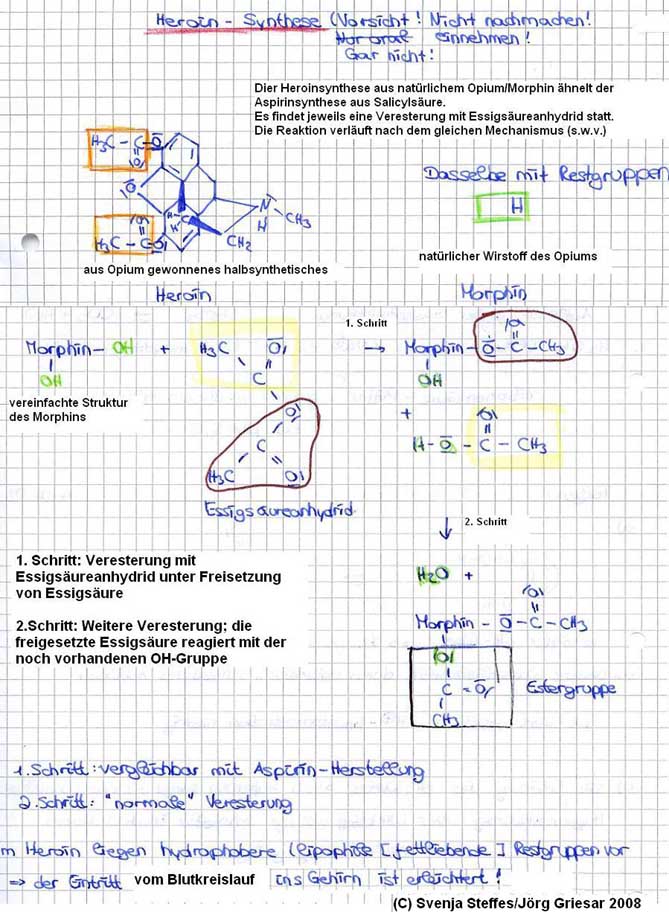 Heroin - Synthese (Vorsicht! Nicht nachmachen!
Nur oral einnehmen!
Gar nicht!
Dier Heroinsynthese aus natürlichem Opium/Morphin ähnelt der
Aspirinsynthese aus Salicylsäure.
Es findet jeweils eine Veresterung mit Essigsäureanhydrid statt.
Die Reaktion verläuft nach dem gleichen Mechanismus (s.w.v.)
H3C - C - O
O
O
N - CH3
H
H - C
H
CH2
O
H3C - C - O
aus Opium gewonnenes halbsynthetisches
Heroin
Dasselbe mit Restgruppen
H
natürlicher Wirstoff des Opiums
Morphin
Morphin - OH +
OH
vereinfachte Struktur
des Morphins
H3C O
C
O
C
H3C O
Essigsäureanhydrid
1. Schritt
→
Morphin - O - C - CH3
O
OH
+
O
H - O - C - CH3
↓ 2. Schritt
H2O +
O
Morphin - O - C - CH3
O
C = O
CH3
Estergruppe
1. Schritt: Veresterung mit
Essigsäureanhydrid unter Freisetzung
von Essigsäure
2.Schritt: Weitere Veresterung; die
freigesetzte Essigsäure reagiert mit der
noch vorhandenen OH-Gruppe
1.Schritt: vergleichbar mit Aspirin-Herstellung
2.Schritt: "normale" Veresterung
m Heroin liegen hydrophobere (lipophile [fettliebende] Restgruppen vor
⇒ der Eintritt vom Blutkreislauf ins Gehirn ist erleichtert!
(C) Svenja Steffes/Jörg Griesar 2008